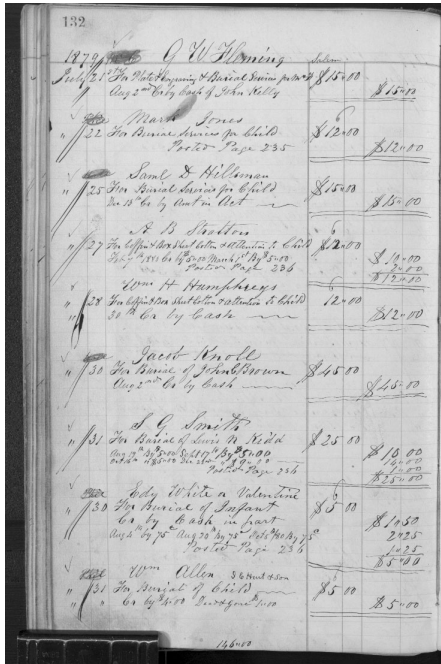 132
1879 G W Fleming Sales
July 21 For Plate & Engraving & Burial Services for $15.00
Aug 2nd Cr By Cash of John Kelly $15.00
Mark Jones 6
" 22 For Burial Services for Child $12.00
Posted Page 235 $12.00
Saml D Hillman
" 25 For Burial Services for Child $15.00
Dec 13th Cr by Amt in Act $15.00
A B Stratton 6
" 27 For Coffin & Box Short Cotton & attention to Child $12.00
By $5.00 March 1st By $5.00 $10.00
Posted Page 236 2.00
$12.00
Wm H Humphreys 6
" 28 For Coffin & Box Short Cotton & attention to Child 12.00
30th Cr by Cash $12.00
Jacob Knoll
" 30 For Burial of John C Brown $45.00
Aug 2nd Cr by Cash $45.00
S. G. Smith
" 31 For Burial of Lewis N Kidd $25.00
Aug 19th By $5.00 Sept 17th By $5.00 $10.00
14.00
Posted Page 236 1.00
$25.00
Edy White or Valentine 6
" 30 For Burial of Infant $5.00
Cr by Cash in part $1.50
Aug 4th by 75c Aug 20th By 75c By 75c 2.25
Posted Page 236 1.25
$5.00
Wm Allen
" 31 For Burial of Child $5.00
" Cr by $4.00 1.00 $5.00
146.00